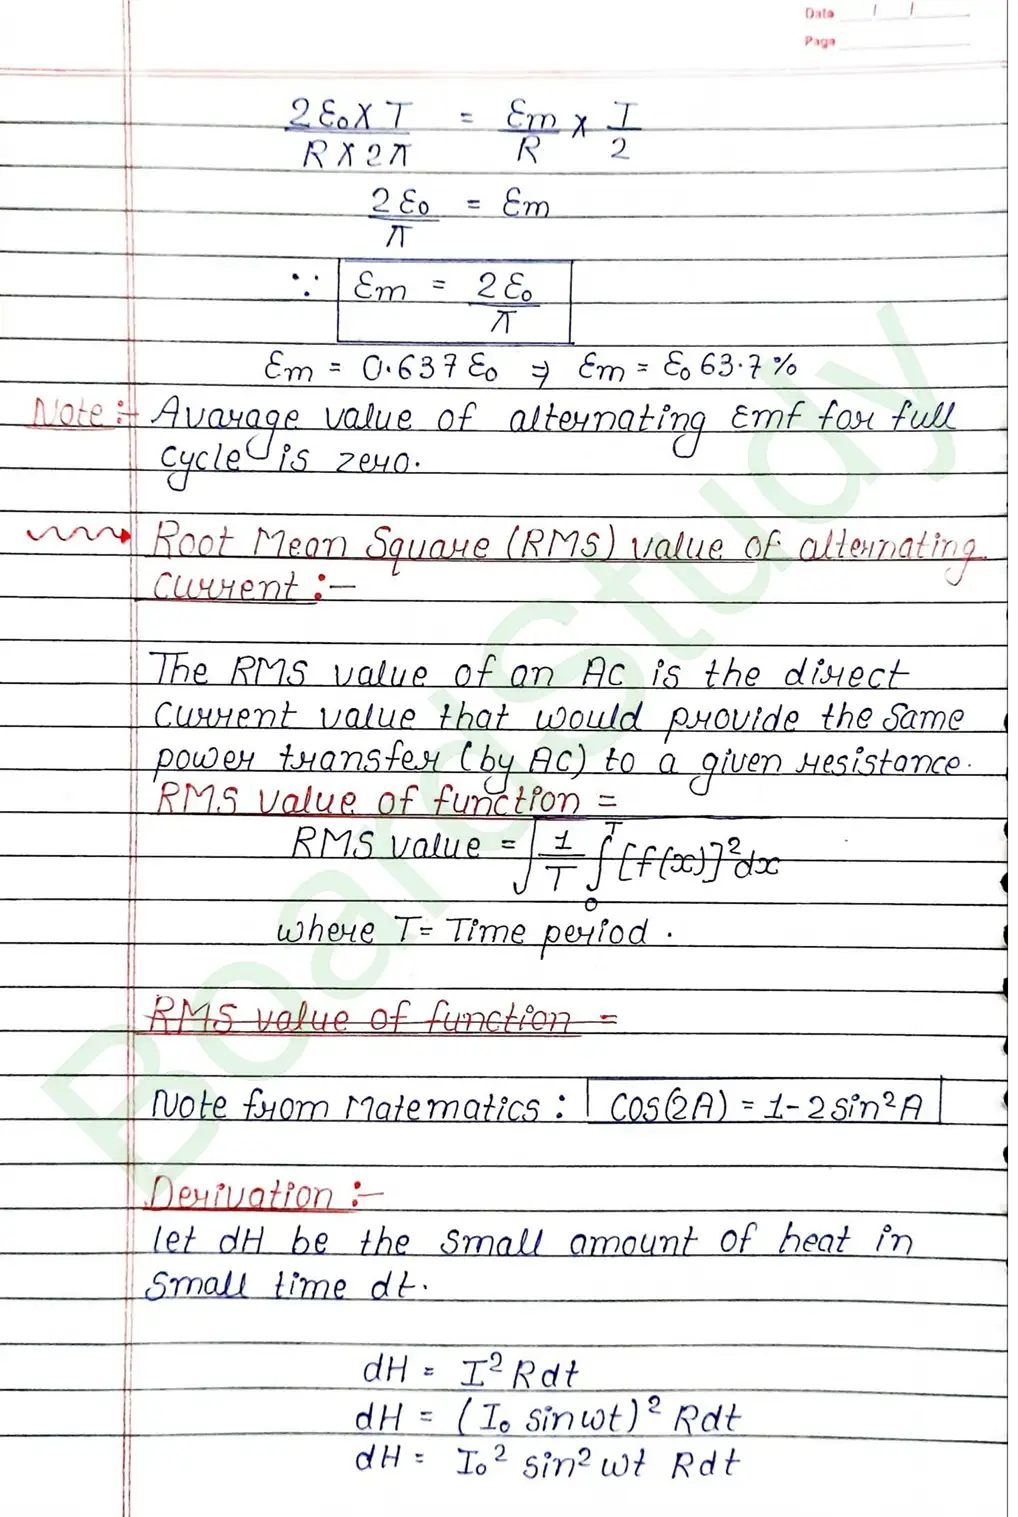 Date / /
Page
2ε₀ × T / R × 2π = εm / R × T / 2
2ε₀ / π = εm
∵ εm = 2ε₀ / π
εm = 0.637 ε₀ ⇒ εm = ε₀ 63.7 %
Note :- Avarage value of alternating Emf for full
cycle is zero.
Root Mean Square (RMS) value of alternating
Current :-
The RMS value of an AC is the direct
Current value that would provide the same
power transfer (by AC) to a given resistance.
RMS value of function =
RMS value = √ 1/T ∫₀ᵀ [f(x)]² dx
where T = Time period.
RMS value of function =
Note from Matematics : cos(2A) = 1 - 2 sin²A
Derivation :-
let dH be the small amount of heat in
small time dt.
dH = I² Rdt
dH = (I₀ sin wt)² Rdt
dH = I₀² sin² wt Rdt
BoardStudy